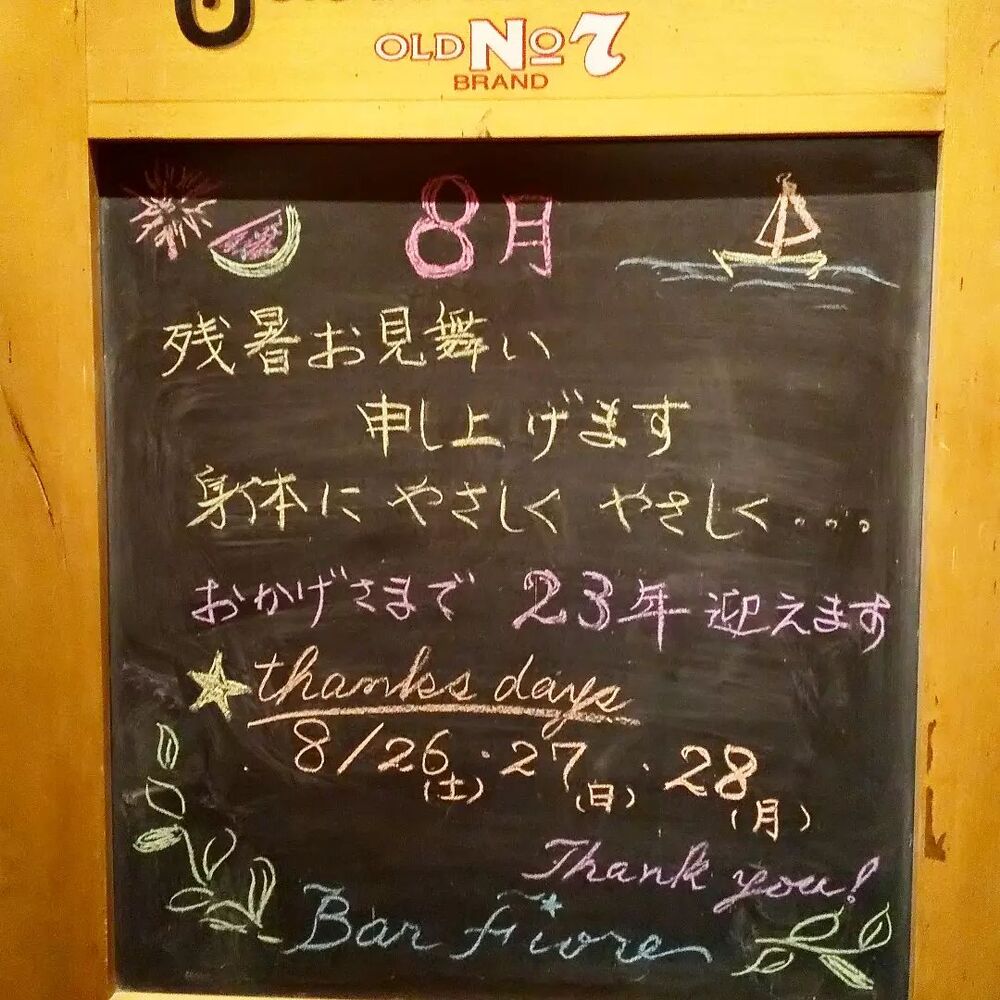 OLD No 7
BRAND
8月
残暑お見舞い
申し上げます
身体に やさしく やさしく....
おかげさまで 23年 迎えます
thanks days
8/26(土)・27(日)・28(月)
Thank you!
Bar Fiore